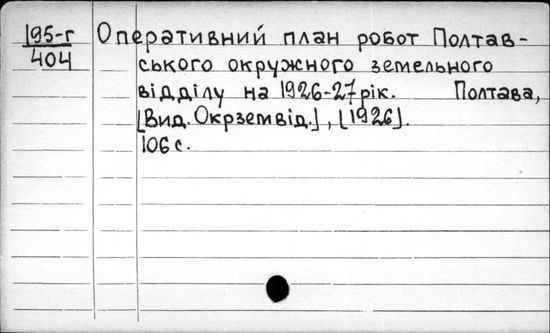 195-г
404
Оперативний план робот Полтав-
ського окружного земельного
відділу на 1926-27 рік. Полтава,
[Вид. Окрземвід.], [1926].
106 с.